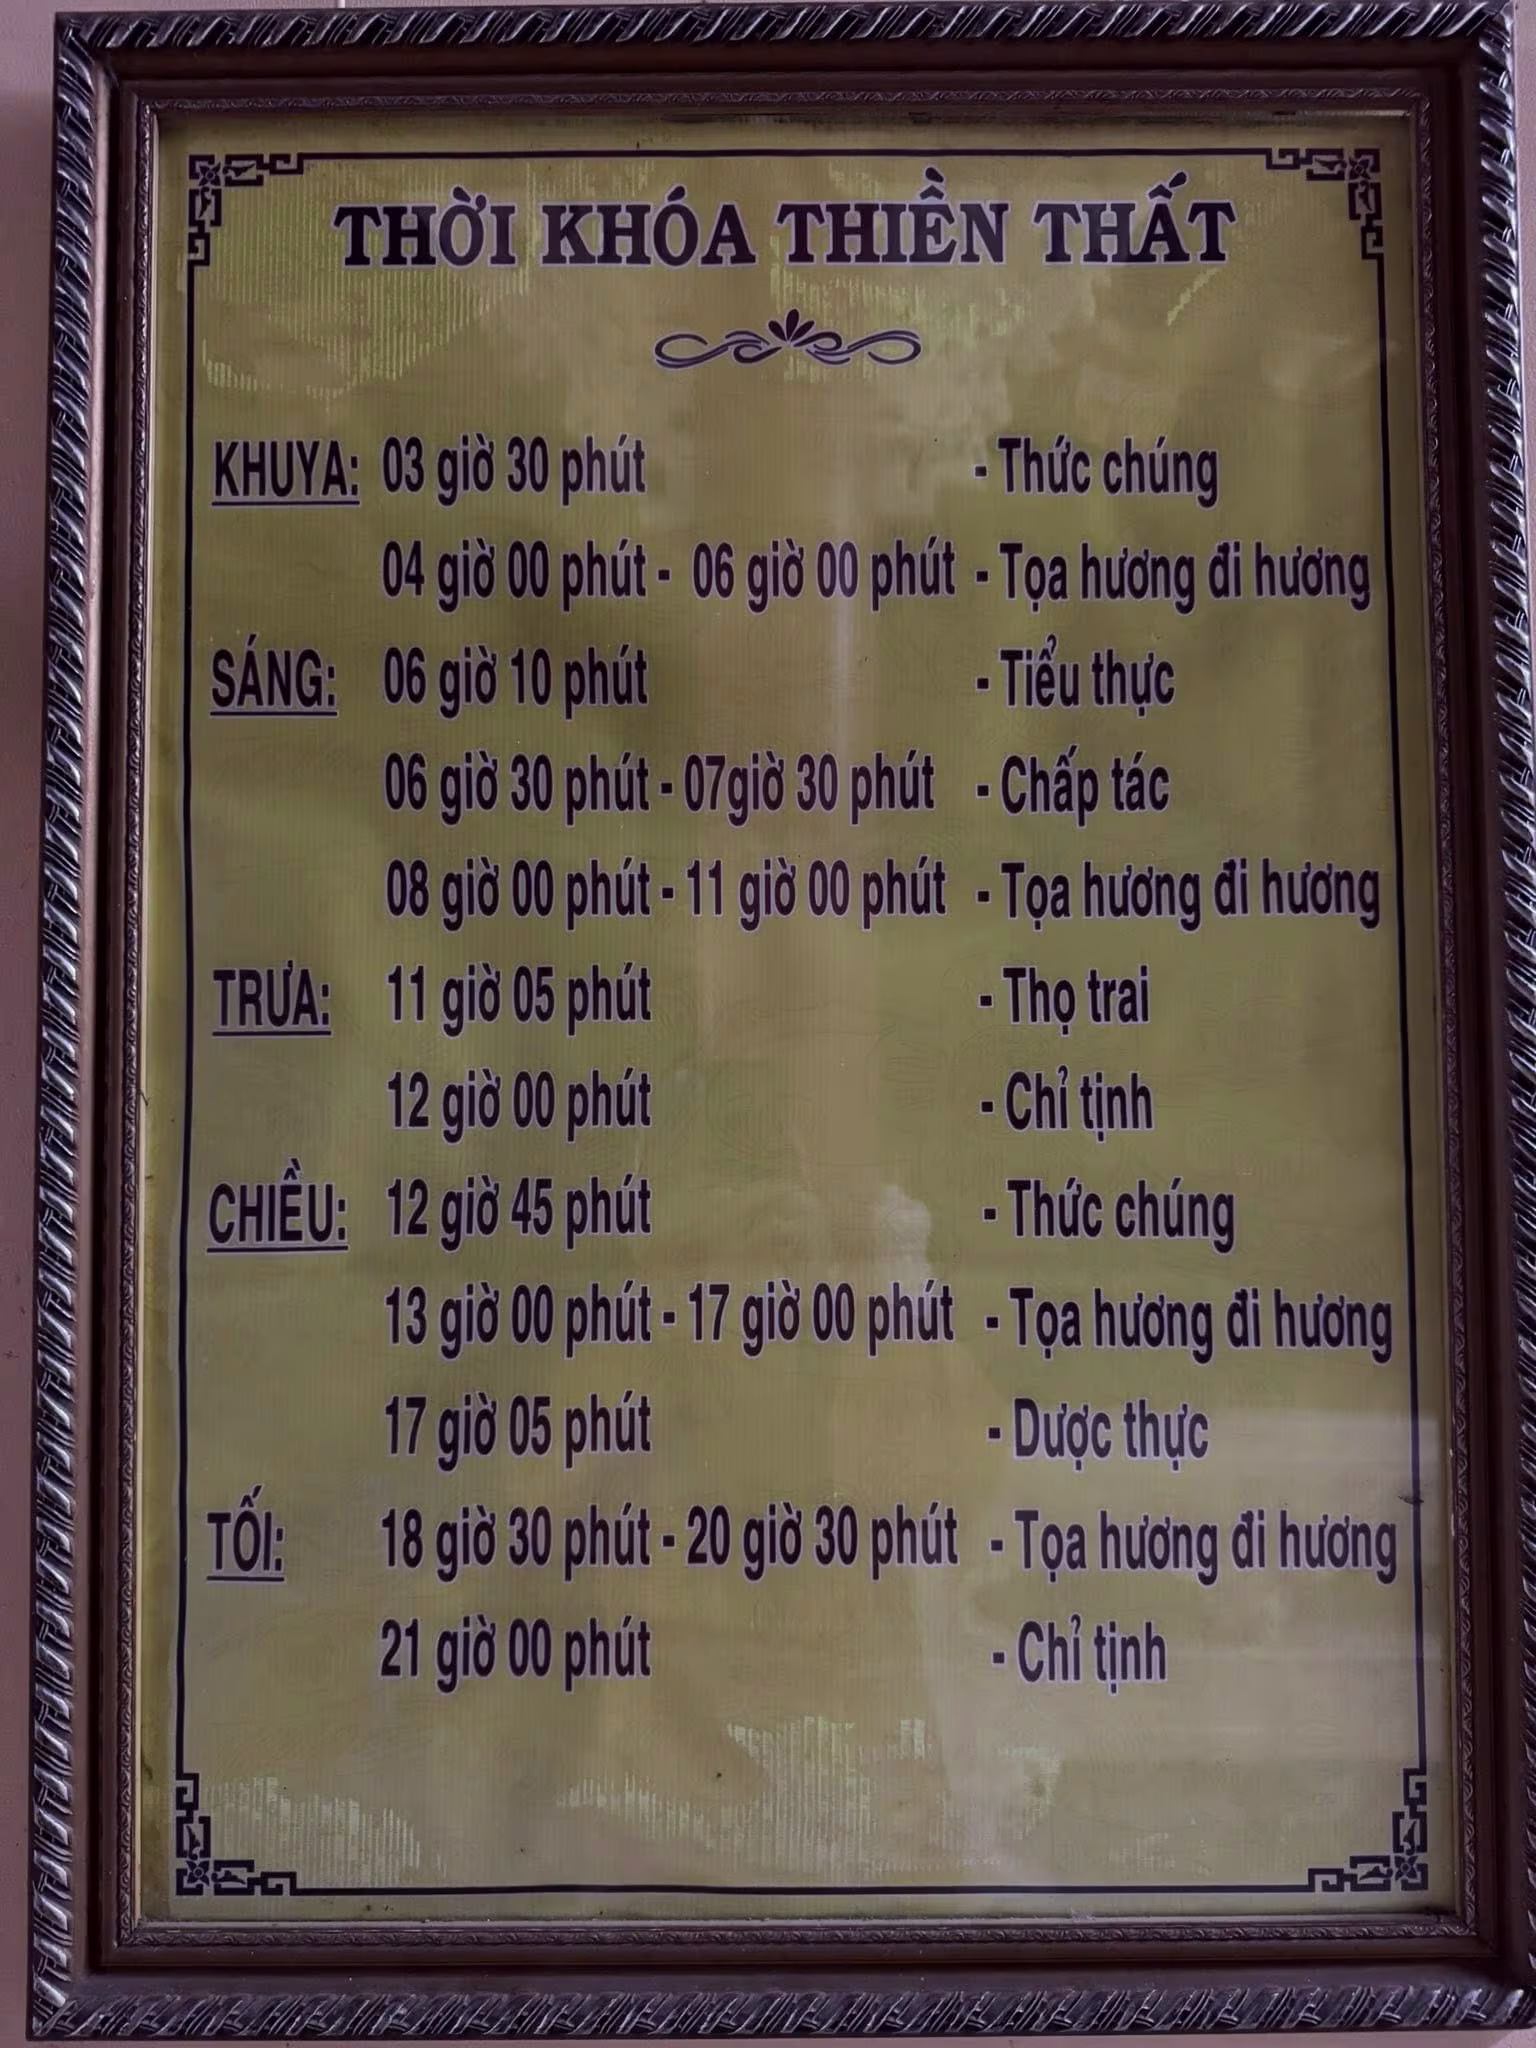 THỜI KHÓA THIỀN THẤT
KHUYA: 03 giờ 30 phút - Thức chúng
04 giờ 00 phút - 06 giờ 00 phút - Tọa hương đi hương
SÁNG: 06 giờ 10 phút - Tiểu thực
06 giờ 30 phút - 07giờ 30 phút - Chấp tác
08 giờ 00 phút - 11 giờ 00 phút - Tọa hương đi hương
TRƯA: 11 giờ 05 phút - Thọ trai
12 giờ 00 phút - Chỉ tịnh
CHIỀU: 12 giờ 45 phút - Thức chúng
13 giờ 00 phút - 17 giờ 00 phút - Tọa hương đi hương
17 giờ 05 phút - Dược thực
TỐI: 18 giờ 30 phút - 20 giờ 30 phút - Tọa hương đi hương
21 giờ 00 phút - Chỉ tịnh